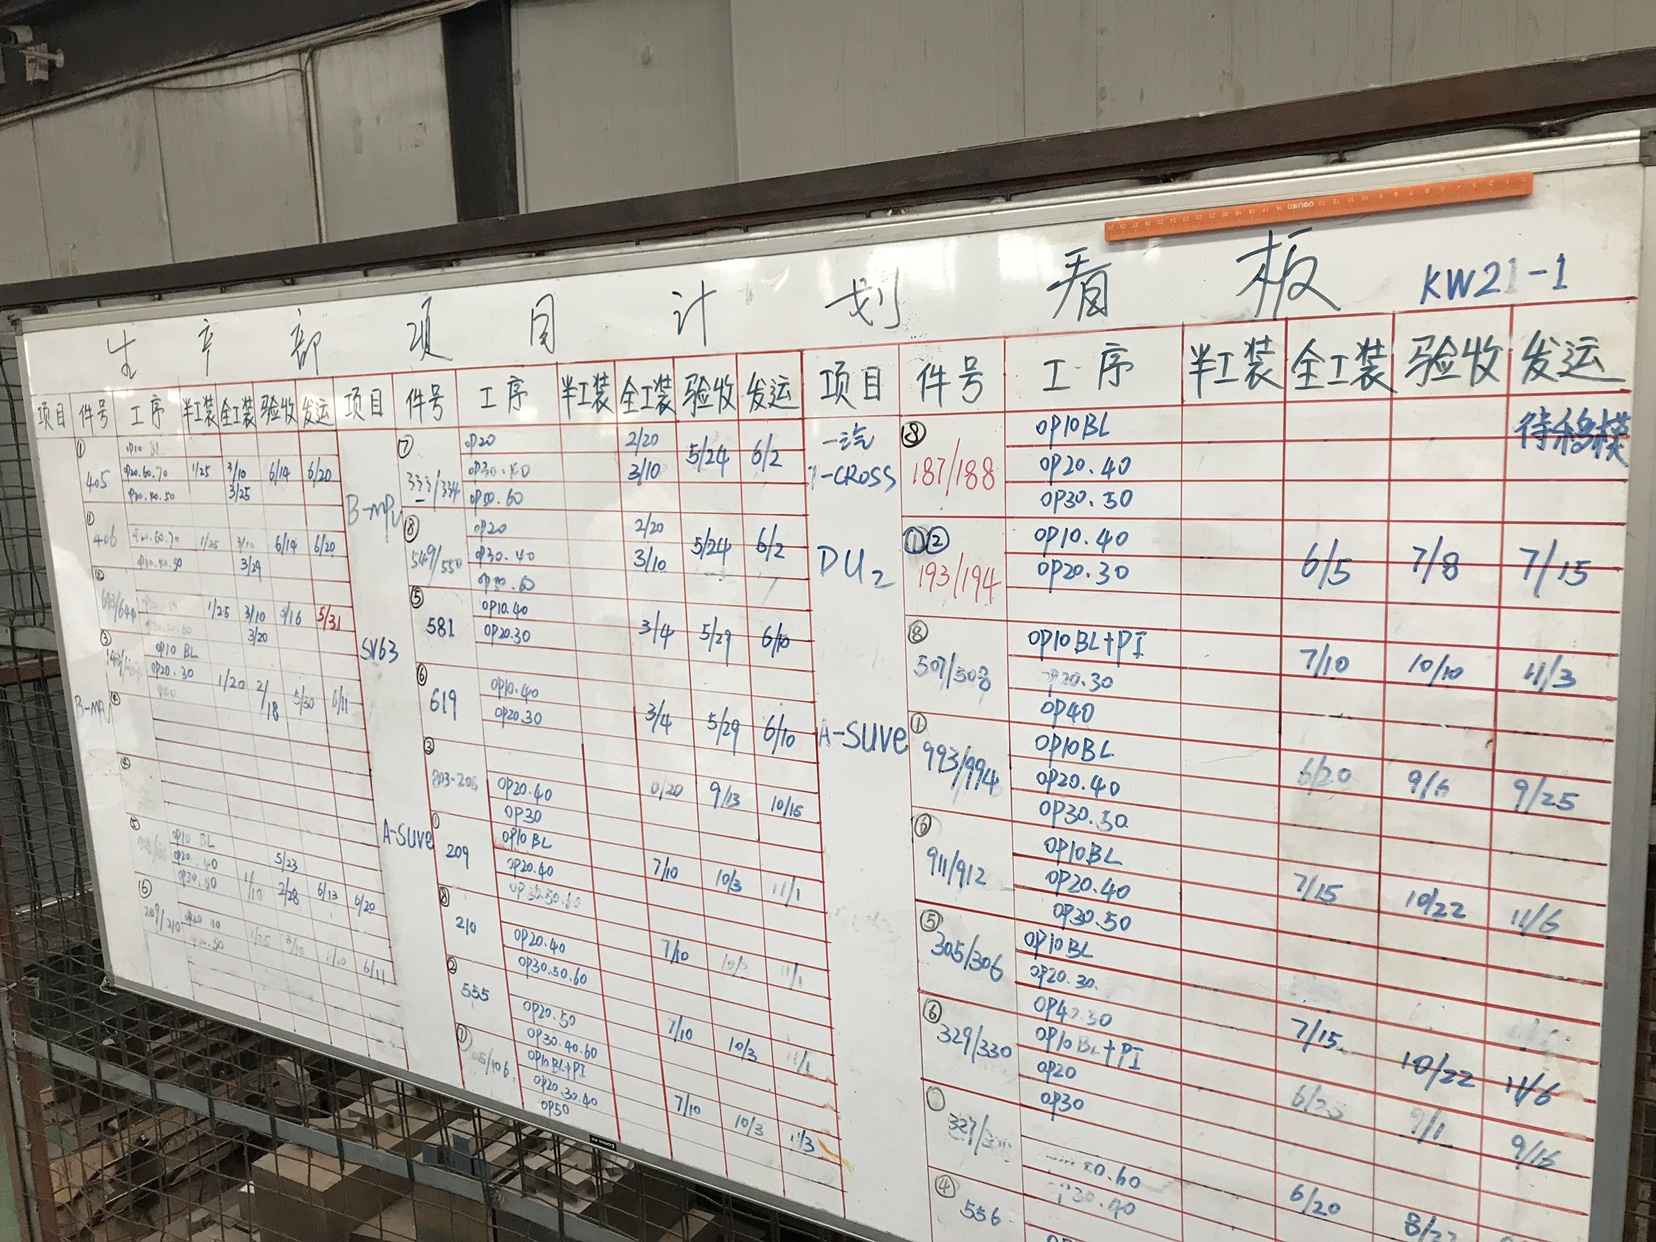 生产部项目计划看板 KW21-1
项目 件号 工序 半工装 全工装 验收 发运
① 405 OP10 BL
OP20.60.70 1/25 3/10 6/14 6/20
OP30.40.50 3/25
① 406
1/25 6/14 6/20
OP30.40.50 3/29
1/25 3/10 5/31
3/20
③ OP10 BL
OP20.30 1/20 2/18 5/30 6/11
B-MPV
⑤ OP10 BL 5/23
OP20.40
OP30.50 1/10 2/28 6/13 6/20
209/210 6/11
项目 件号 工序 半工装 全工装 验收 发运
B-MPV
⑦ 333/334 OP20 2/20 5/24 6/2
3/10
OP50.60
⑧ 549/550 OP20 2/20 5/24 6/2
OP30.40 3/10
SV63
⑤ 581 OP10.40
OP20.30 3/4 5/29 6/10
⑥ 619 OP10.40
OP20.30 3/4 5/29 6/10
A-SUVe
OP20.40 9/13 10/15
OP30
① 209 OP10 BL
OP20.40 7/10 10/3 11/1
⑧ 210 OP20.40 7/10
OP30.50.60
② 555 OP20.50 7/10 10/3 11/1
OP30.40.60
① OP10BL+PI
OP20.30.40 7/10 10/3 11/3
OP50
项目 件号 工序 半工装 全工装 验收 发运
一汽 T-CROSS
⑧ 187/188 OP10BL 待移模
OP20.40
OP30.50
DU2
①② 193/194 OP10.40
OP20.30 6/5 7/8 7/15
A-SUVe
⑧ 507/508 OP10BL+PI 7/10 10/10 11/3
OP20.30
OP40
① 993/994 OP10BL
OP20.40 6/20 9/6 9/25
OP30.50
⑥ 911/912 OP10BL
OP20.40 7/15 10/22 11/6
OP30.50
⑤ 305/306 OP10BL
OP20.30
OP40.50 7/15 10/22 11/6
⑥ 329/330 OP10BL+PI
OP20
OP30 6/25 9/1 9/15
6/20
④ 556